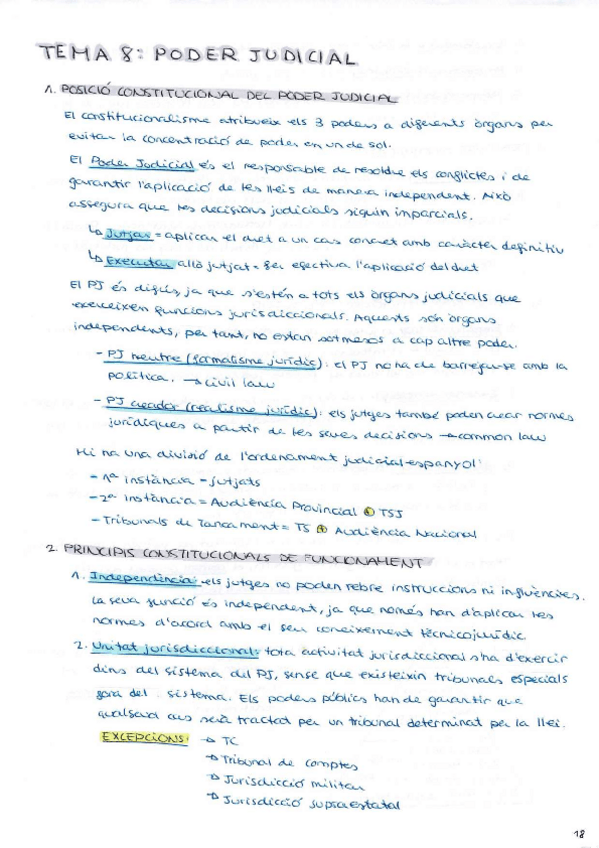 TEMA 8: PODER JUDICIAL
1. POSICIÓ CONSTITUCIONAL DEL PODER JUDICIAL
El constitucionalisme atribueix els 3 poders a diferents òrgans per
evitar la concentració de poder en un de sol.
El Poder Judicial és el responsable de resoldre els conflictes i de
garantir l'aplicació de les lleis de manera independent. Això
assegura que les decisions judicials siguin imparcials.
↳ Jutjar = aplicar el dret a un cas concret amb caràcter definitiu
↳ Executar allò jutjat = fer efectiva l'aplicació del dret
El PJ és difús, ja que s'estén a tots els òrgans judicials que
exerceixen funcions jurisdiccionals. Aquests són òrgans
independents, per tant, no estan sotmesos a cap altre poder.
- PJ neutre (formalisme jurídic): el PJ no ha de barrejar-se amb la
política. → civil law
- PJ creador (realisme jurídic): els jutges també poden crear normes
jurídiques a partir de les seves decisions → common law
Hi ha una divisió de l'ordenament judicial espanyol:
- 1ª instància - jutjats
- 2ª instància = Audiència Provincial + TSJ
- Tribunals de tancament = TS + Audiència Nacional
2. PRINCIPIS CONSTITUCIONALS DE FUNCIONAMENT
1. Independència: els jutges no poden rebre instruccions ni influències.
La seva funció és independent, ja que només han d'aplicar les
normes d'acord amb el seu coneixement tècnicojurídic
2. Unitat jurisdiccional: tota activitat jurisdiccional s'ha d'exercir
dins del sistema del PJ, sense que existeixin tribunals especials
fora del sistema. Els poders públics han de garantir que
qualsevol cas serà tractat per un tribunal determinat per la llei.
EXCEPCIONS: → TC
→ Tribunal de comptes
→ Jurisdicció militar
→ Jurisdicció supraestatal
18